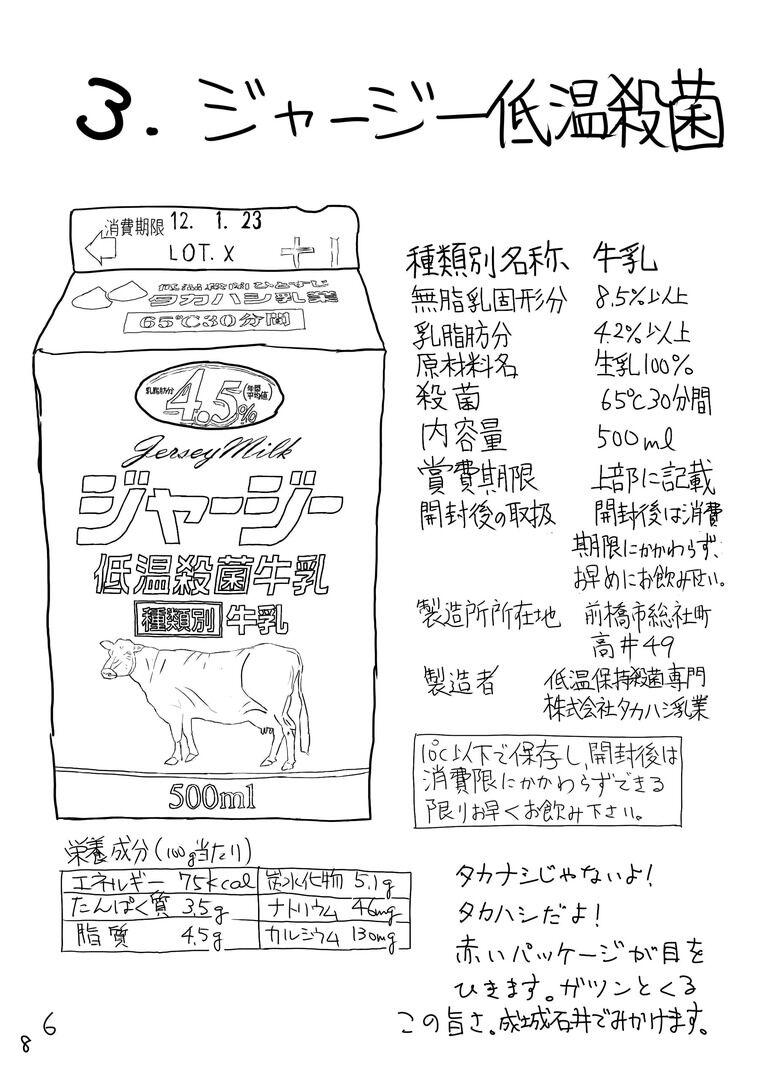 3. ジャージー低温殺菌
消費期限 12. 1. 23
LOT. X
低温殺菌ひとすじ
タカハシ乳業
65℃30分間
乳脂肪分 4.5% (年間平均値)
Jersey Milk
ジャージー
低温殺菌牛乳
種類別 牛乳
500ml
種類別名称 牛乳
無脂乳固形分 8.5%以上
乳脂肪分 4.2%以上
原材料名 生乳100%
殺菌 65℃30分間
内容量 500ml
賞費期限 上部に記載
開封後の取扱 開封後は消費
期限にかかわらず、
お早めにお飲み下さい。
製造所所在地 前橋市総社町
高井49
製造者 低温保持殺菌専門
株式会社タカハシ乳業
10℃以下で保存し、開封後は
消費限にかかわらずできる
限りお早くお飲み下さい。
栄養成分(100g当たり)
エネルギー 75kcal 炭水化物 5.1g
たんぱく質 3.5g ナトリウム 46mg
脂質 4.5g カルシウム 130mg
タカナシじゃないよ!
タカハシだよ!
赤いパッケージが目を
ひきます。ガツンとくる
この旨さ。成城石井でみかけます。
6
8